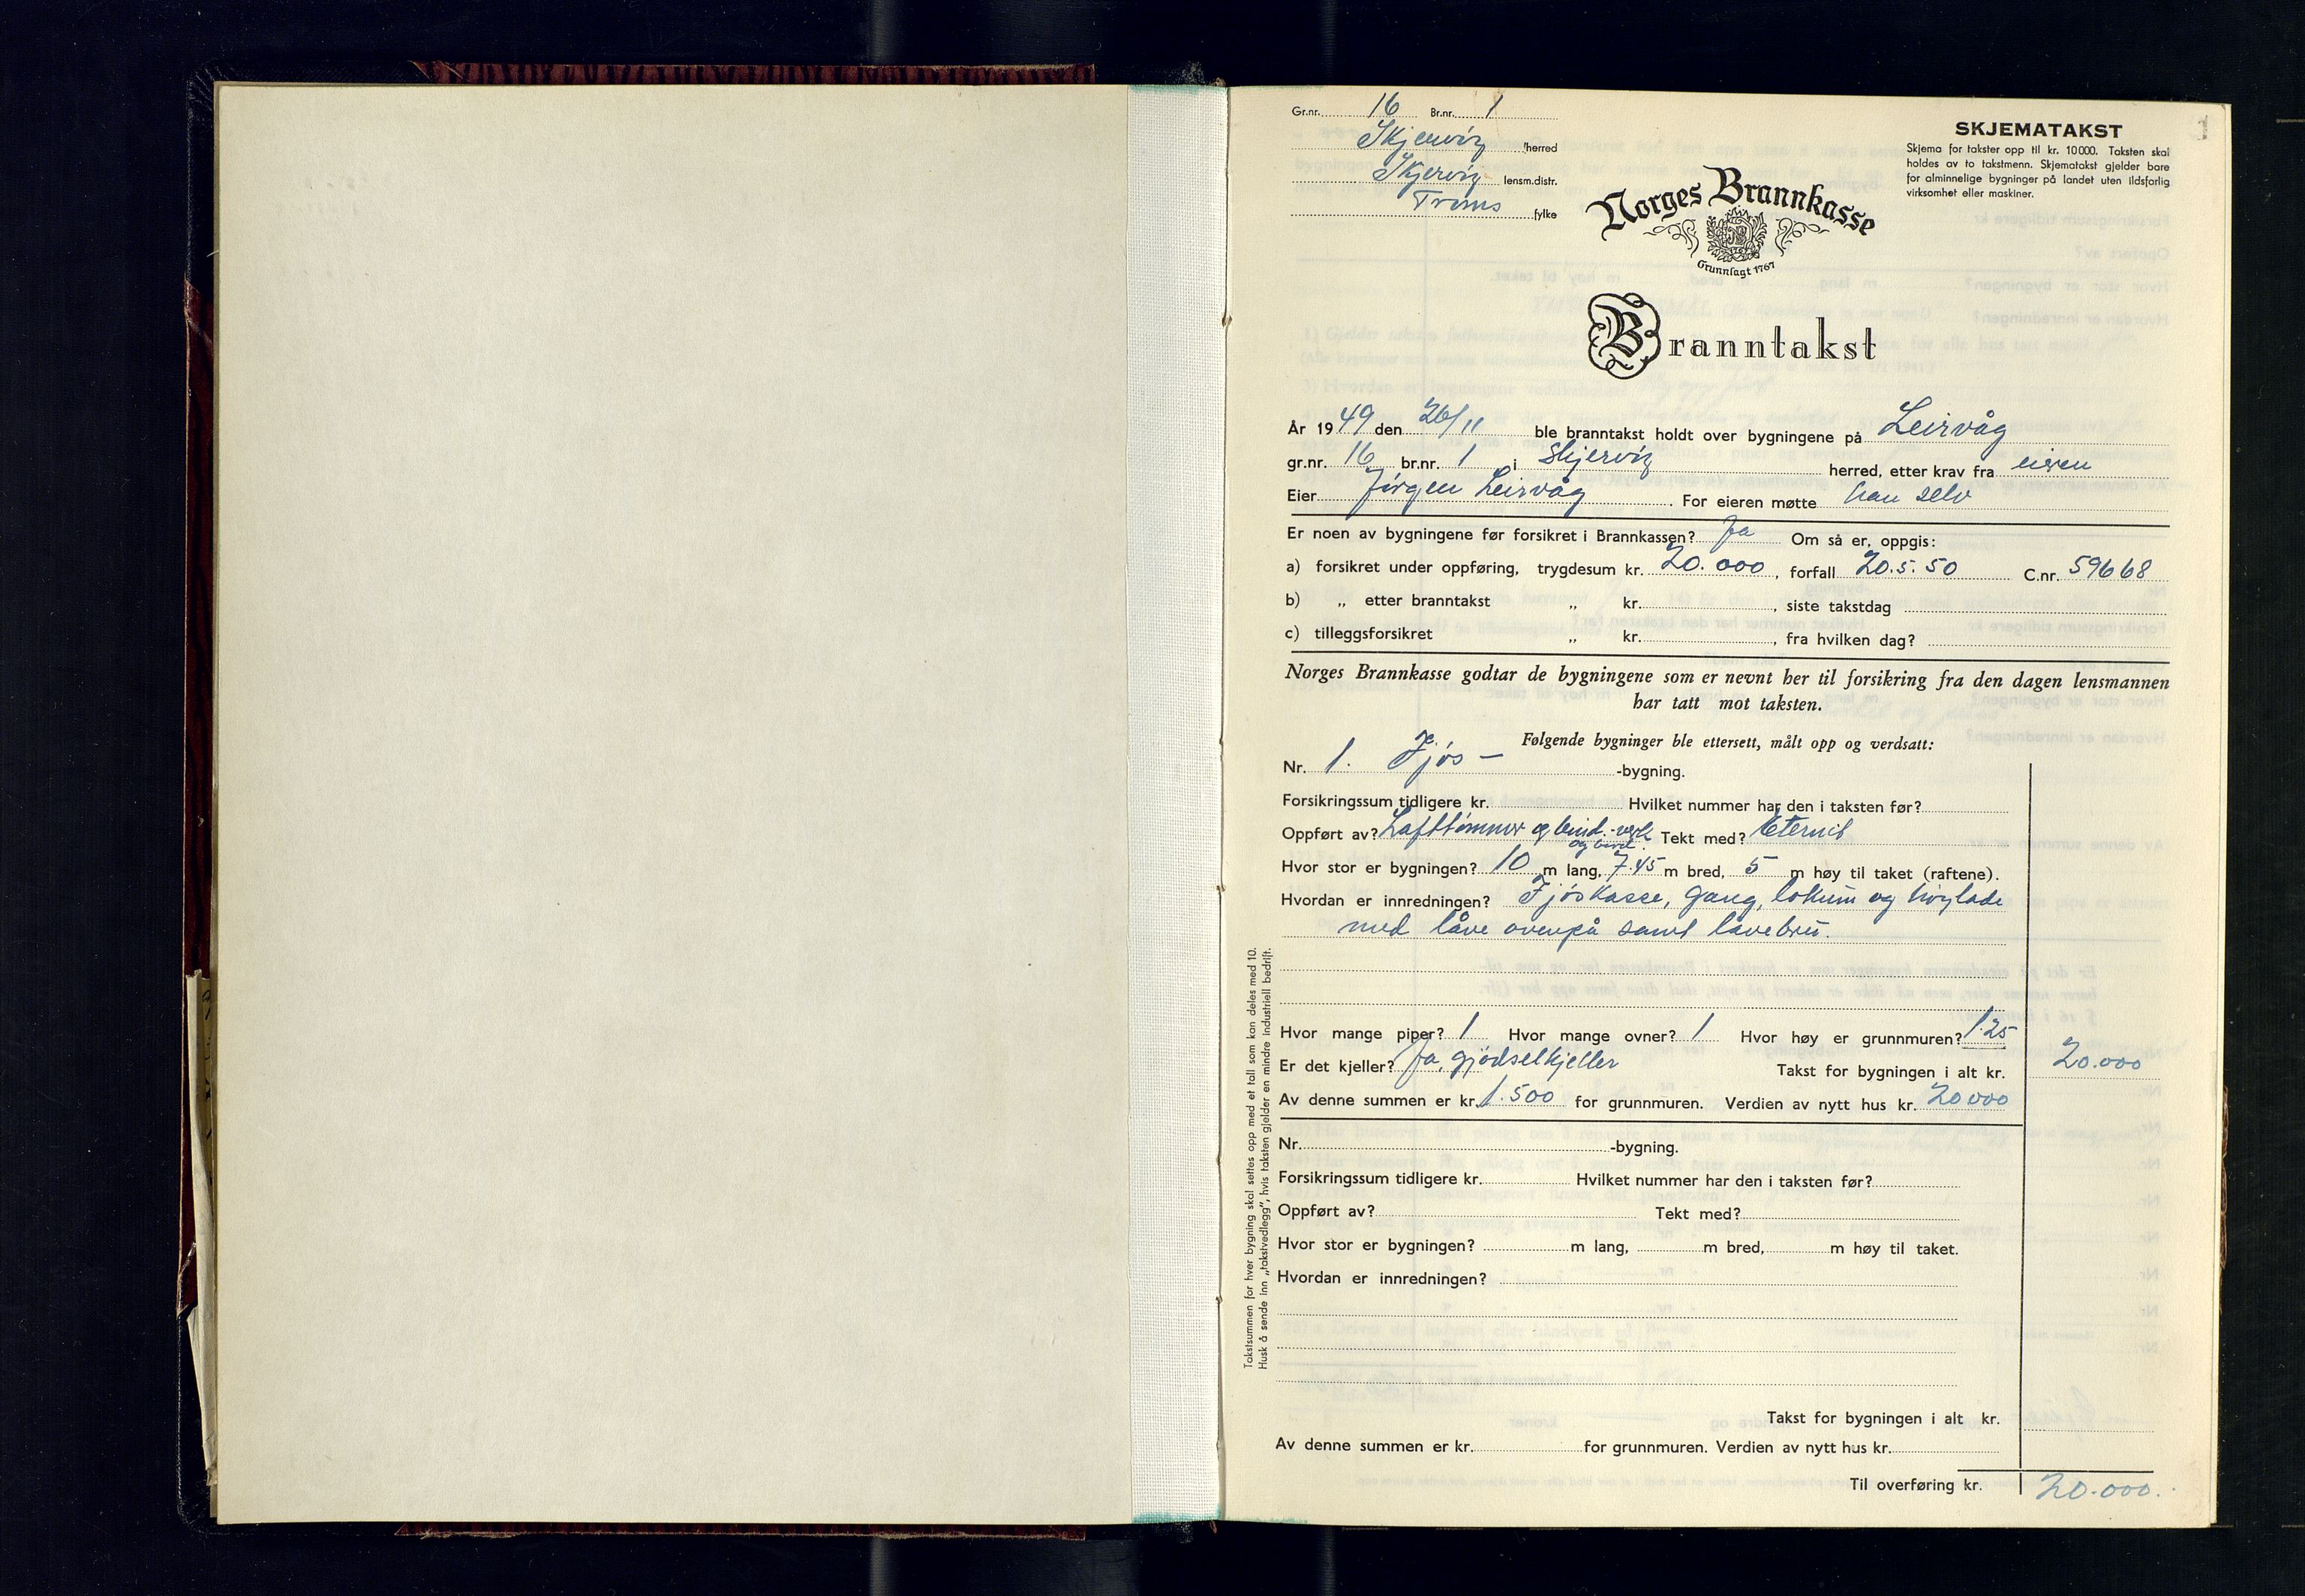 1
Gr.nr. 16 Br.nr. 1
Skjervöy herred
Skjervöy lensm.distr.
Troms fylke
SKJEMATAKST
Skjema for takster opp til kr. 10 000. Taksten skal
holdes av to takstmenn. Skjematakst gjelder bare
for alminnelige bygninger på landet uten ildsfarlig
virksomhet eller maskiner.
Norges Brannkasse
Grunnlagt 1767
Branntakst
År 1949 den 26/11 ble branntakst holdt over bygningene på Leirvåg
gr.nr. 16 br.nr. 1 i Skjervöy herred, etter krav fra eieren
Eier Jörgen Leirvåg. For eieren møtte han selv
Er noen av bygningene før forsikret i Brannkassen? Ja Om så er, oppgis:
a) forsikret under oppføring, trygdesum kr. 20.000, forfall 20.5.50 C.nr. 59668
b) „ etter branntakst „ kr. , siste takstdag
c) tilleggsforsikret „ kr. , fra hvilken dag?
Norges Brannkasse godtar de bygningene som er nevnt her til forsikring fra den dagen lensmannen
har tatt mot taksten.
Følgende bygninger ble ettersett, målt opp og verdsatt:
Nr. 1. Fjös- -bygning.
Forsikringssum tidligere kr. Hvilket nummer har den i taksten før?
Oppført av? Lafttömmer og bind.-verk Tekt med? Eternit
Hvor stor er bygningen? 10 m lang, 7.45 m bred, 5 m høy til taket (raftene).
Hvordan er innredningen? Fjöskasse, gang, lokum og höylade
med låve ovenpå samt låvebru.
Hvor mange piper? 1 Hvor mange ovner? 1 Hvor høy er grunnmuren? 1.25
Er det kjeller? Ja, gjödselkjeller Takst for bygningen i alt kr. 20.000
Av denne summen er kr. 1.500 for grunnmuren. Verdien av nytt hus kr. 20000
Nr. -bygning.
Forsikringssum tidligere kr. Hvilket nummer har den i taksten før?
Oppført av? Tekt med?
Hvor stor er bygningen? m lang, m bred, m høy til taket.
Hvordan er innredningen?
Takst for bygningen i alt kr.
Av denne summen er kr. for grunnmuren. Verdien av nytt hus kr.
Til overføring kr. 20.000.
Takstsummen for hver bygning skal settes opp med et tall som kan deles med 10.
Husk å sende inn „takstvedlegg", hvis taksten gjelder en mindre industriell bedrift.